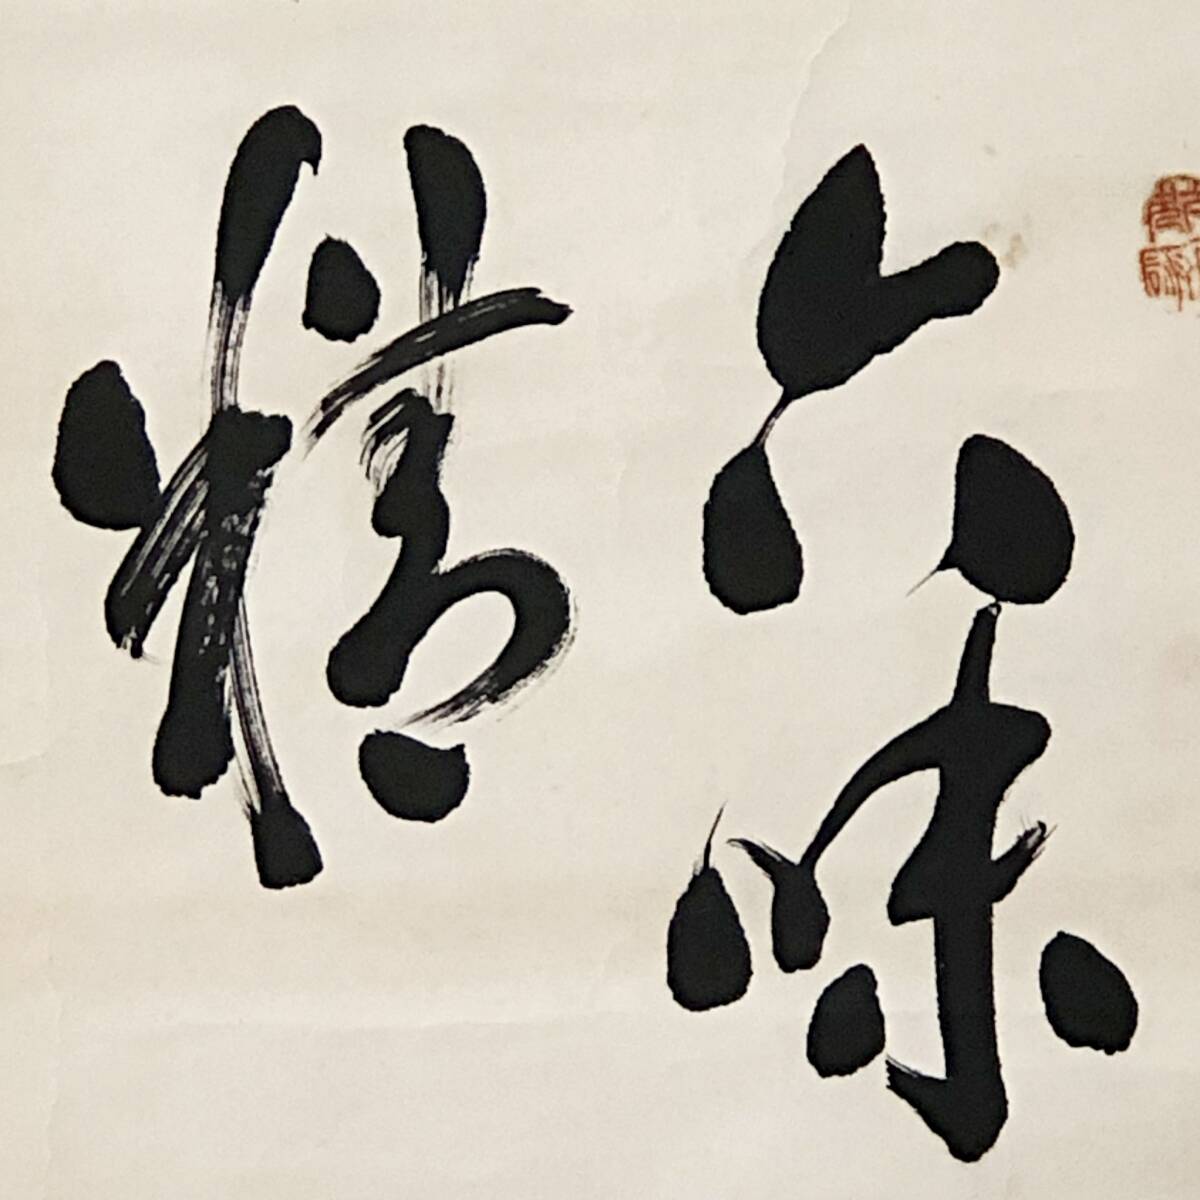 六味
精